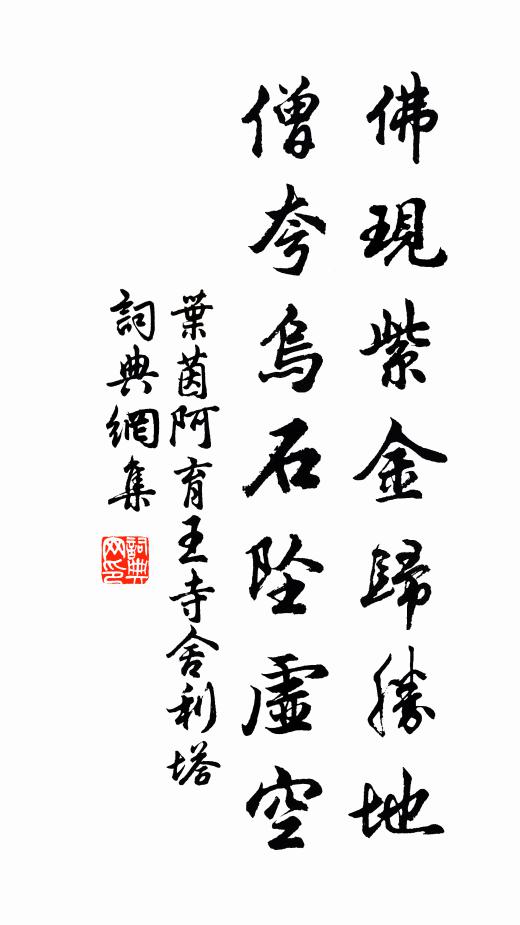 佛現紫金歸勝地
僧夸烏石墜虛空
葉茵阿育王寺舍利塔
詞典網集
詞典网印